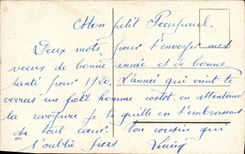 Mon petit
Deux mots pour t'envoyer mes
voeux de bonne année et de bonne
santé pour 1920. L'année qui vient te
verras un petit homme costot. en attendant
la revoyure je te quitte en t'embrassant
de tout coeur. ton cousin que
t'oublie pas